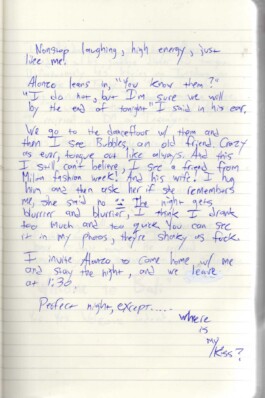 Nonstop laughing, high energy, just
like me!
Alonzo leans in, "You know them?"
"I do not, but I'm sure we will
by the end of tonight" I said in his ear.
We go to the dancefloor w/ them and
then I see Bubbles, an old friend. Crazy
as ever, tongue out like always. And this
I still can't believe, I see a friend from
Milan fashion week! And his wife. I hug
him and then ask her if she remembers
me, she said no. The night gets
blurrier and blurrier, I think I drank
too much and too quick. You can see
it in my photos, they're shaky as fuck.
I invite Alonzo to come home w/ me
and stay the night, and we leave
at 1:30.
Perfect night, except.....
where
is
my
kiss?